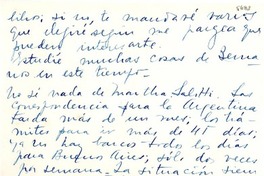 libro, si no, te mandaré varios
que elegiré según me parezca que
pueden interesarte.
Estudié muchas cosas de Berna-
nos en este tiempo.-
No sé nada de Martha Salotti. La
correspondencia para la Argentina
tarda más de un mes; los trá-
mites para ir más de 45 días;
ya no hay barcos todos los días
para Buenos Aires; sólo dos veces
por semana. La situación sien